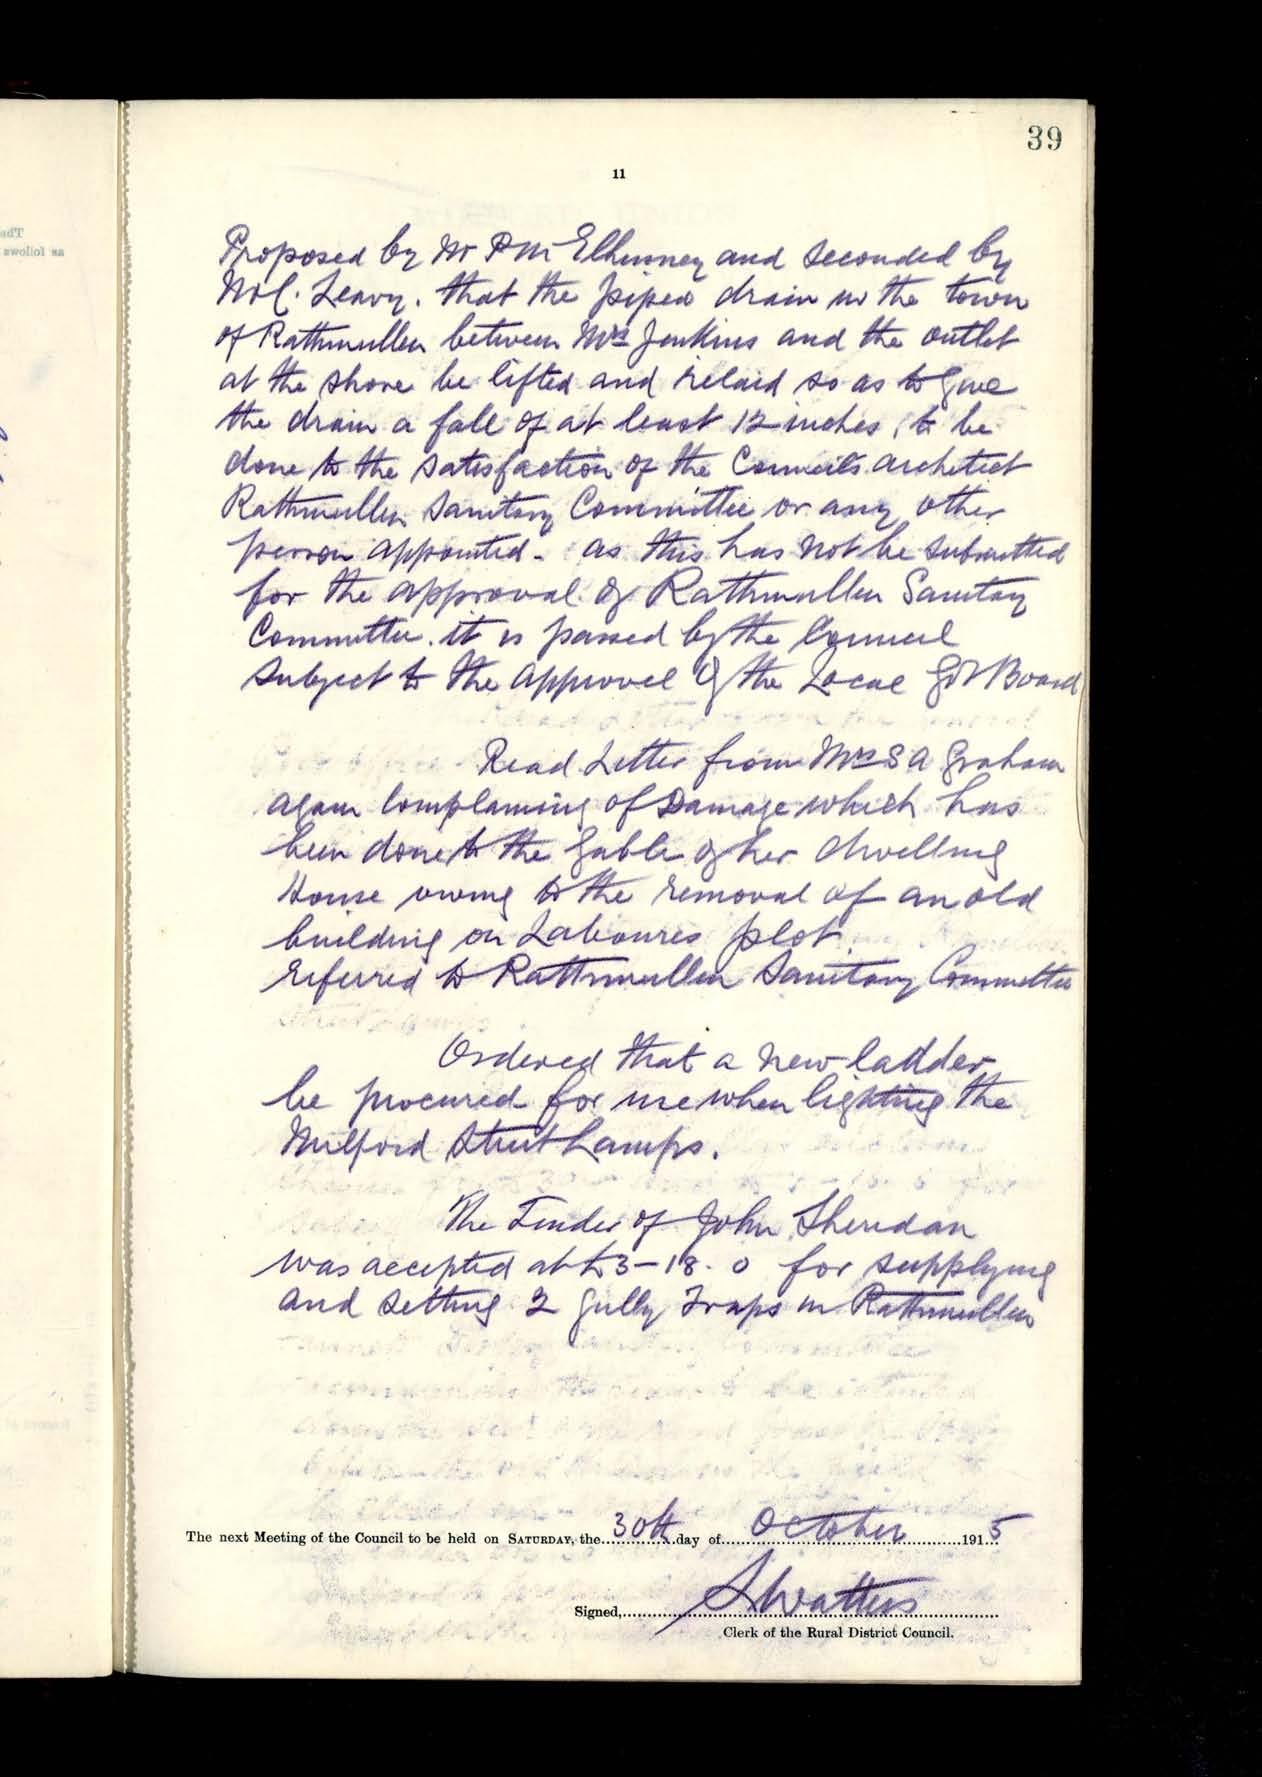 39
11
Proposed by Mr P McElhinney and seconded by
Mr C. Leavy. that the piped drain in the town
of Rathmullen between Mrs Jenkins and the outlet
at the shore be lifted and relaid so as to give
the drain a fall of at least 12 inches, to be
done to the satisfaction of the Council's architect
Rathmullen Sanitary Committee or any other
person appointed - as this has not be submitted
for the approval of Rathmullen Sanitary
Committee. it is passed by the Council
subject to the approval of the Local Gvt Board
Read Letter from Mrs S A Graham
again complaining of Damage which has
been done to the gable of her dwelling
House owing to the removal of an old
building on Laboures plot.
referred to Rathmullen Sanitary Committee
Ordered that a new ladder
be procured for use when lighting the
Milford Street Lamps.
The Tender of John Sheridan
was accepted at £3-18.0 for supplying
and setting 2 gully Traps in Rathmullen
The next Meeting of the Council to be held on SATURDAY, the 30th day of October 1915
Signed, S Watters
Clerk of the Rural District Council.
The
as follows